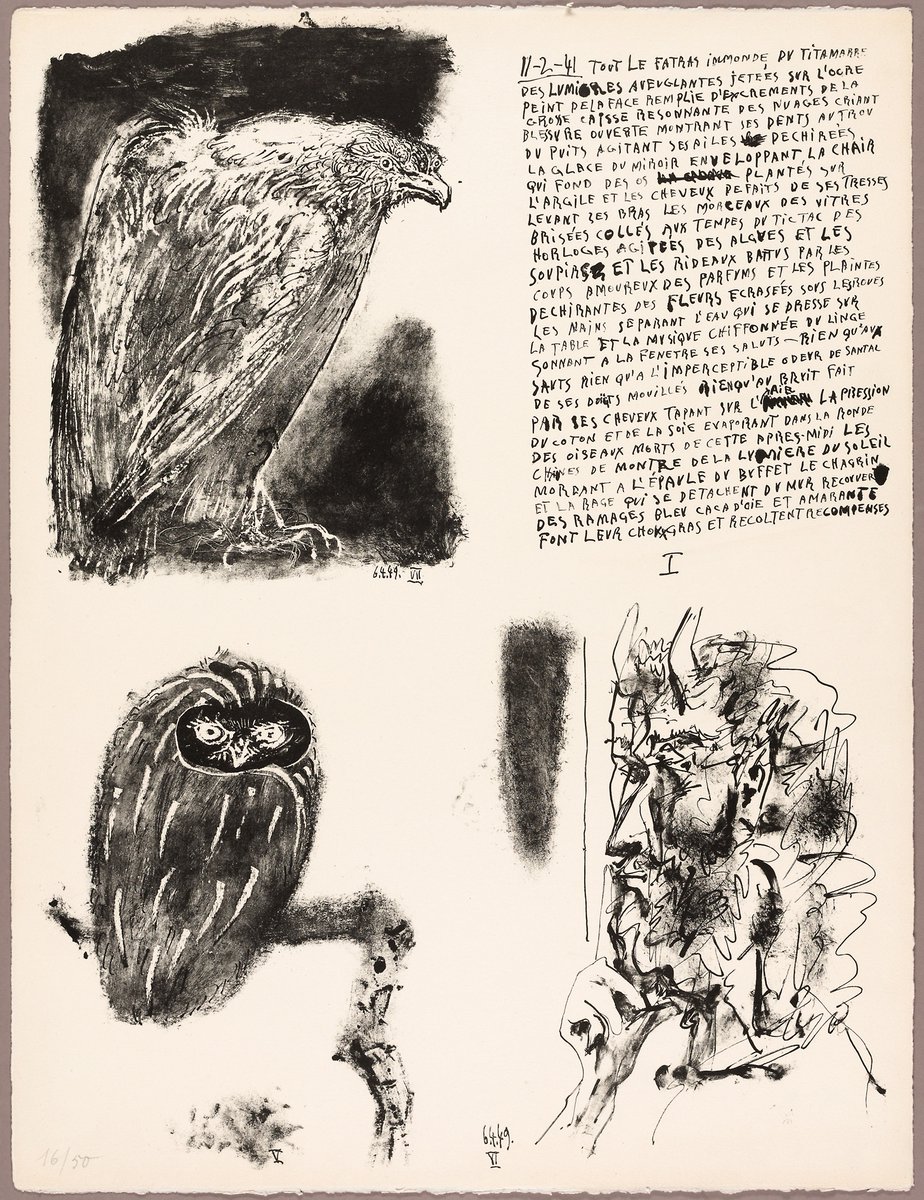 11-2-41 TOUT LE FATRAS IMMONDE DU TITAMARRE
DES LUMIERES AVEUGLANTES JETÉES SUR L'OGRE
PEINT DE LA FACE REMPLIE D'EXCREMENTS DE LA
GROSSE CAISSE RESONNANTE DES NUAGES CRIANT
BLESSURE OUVERTE MONTRANT SES DENTS AU TROU
DU PUITS AGITANT SES AILES DECHIREES
LA GLACE DU MIROIR ENVELOPPANT LA CHAIR
QUI FOND DES OS PLANTÉS SUR
L'ARGILE ET LES CHEVEUX DEFAITS DE SES TRESSES
LEVANT SES BRAS LES MORCEAUX DES VITRES
BRISÉES COLLÉS AUX TEMPES DU TIC TAC DES
HORLOGES AGITÉES DES ALGUES ET LES
SOUPIRS ET LES RIDEAUX BATTUS PAR LES
COUPS AMOUREUX DES PARFUMS ET LES PLAINTES
DECHIRANTES DES FLEURS ECRASEÉS SOUS LES ROUES
LES MAINS SEPARANT L'EAU QUI SE DRESSE SUR
LA TABLE ET LA MUSIQUE CHIFFONNÉE DU LINGE
SONNANT A LA FENETRE SES SALUTS – RIEN QU'AUX
SAUTS RIEN QU'A L'IMPERCEPTIBLE ODEUR DE SANTAL
DE SES DOIGTS MOUILLÉS RIEN QU'AU BRUIT FAIT
PAR SES CHEVEUX TAPANT SUR L'AIR LA PRESSION
DU COTON ET DE LA SOIE EVAPORANT DANS LA RONDE
DES OISEAUX MORTS DE CETTE APRES-MIDI LES
CHAINES DE MONTRE DE LA LUMIERE DU SOLEIL
MORDANT A L'ÉPAULE DU BUFFET LE CHAGRIN
ET LA RAGE QUI SE DETACHENT DU MUR RECOUVERT
DES RAMAGES BLEU CACA D'OIE ET AMARANTE
FONT LEUR CHOUX GRAS ET RECOLTENT RECOMPENSES
I
6.4.49. VII
V
6.4.49.
VI
16/50